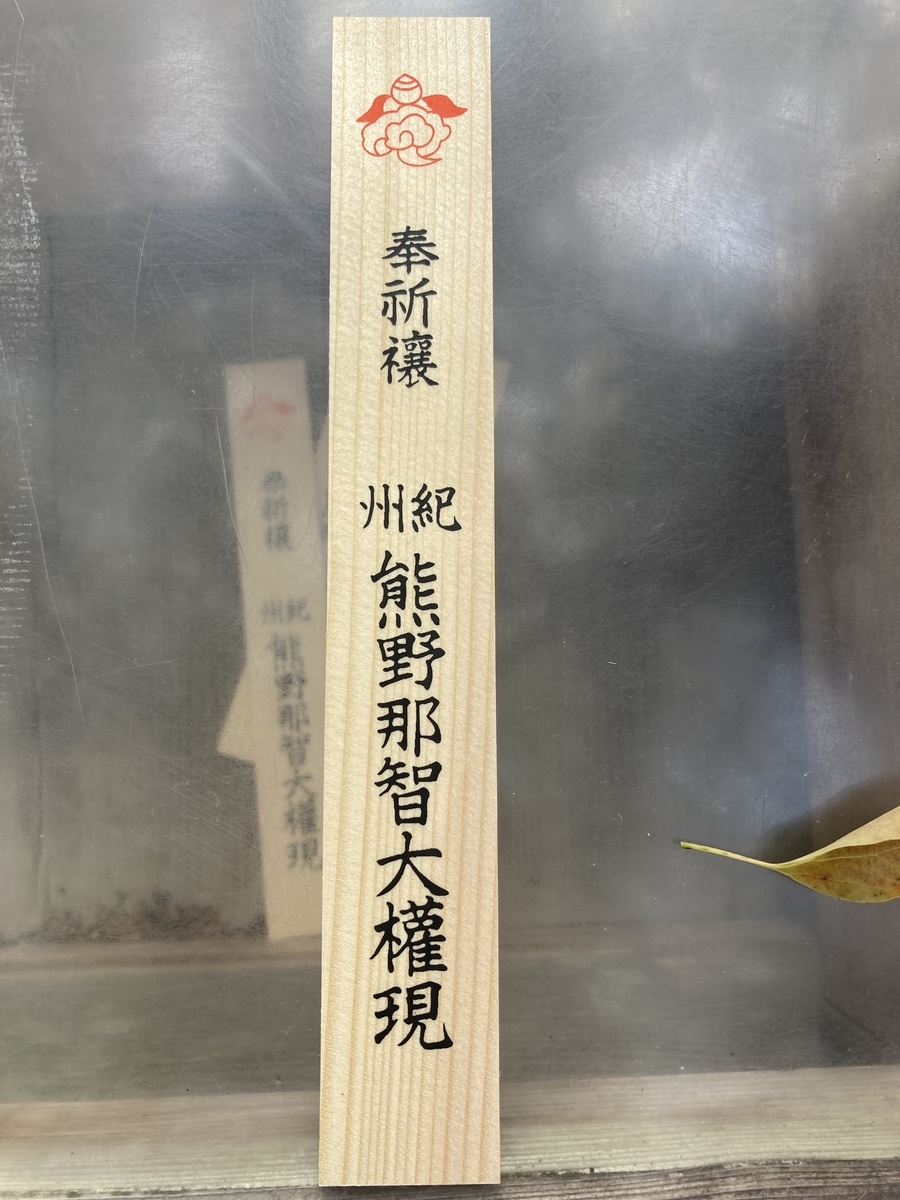 奉祈禳
紀州
熊野那智大權現
奉祈禳
紀州
熊野那智大權現